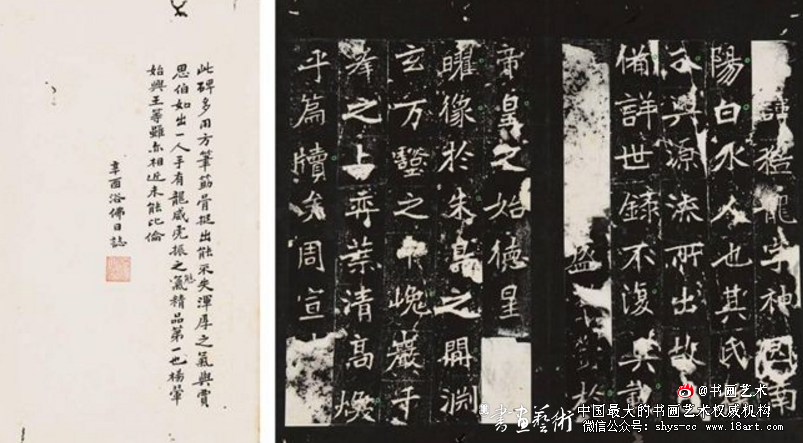 諱猛龍字神冏南
陽白水人也其氏
興源流所出故
備詳世錄不復具載
盛於
帝皇之始德星
曜像於朱鳥之間淵
玄万壑之中巉巖千
峯之上弈葉清高煥
乎篇牘矣周宣
此碑多用方筆筋骨挺出能不失渾厚之氣與賈
思伯如出一人手有龍威虎振之氣精品第一也楊翬
始興王等雖亦相近未能比倫
辛酉浴佛日誌
@书画艺术
書画藝術 中国最大的书画艺术权威机构
微信公众号：shys-cc www.18art.com